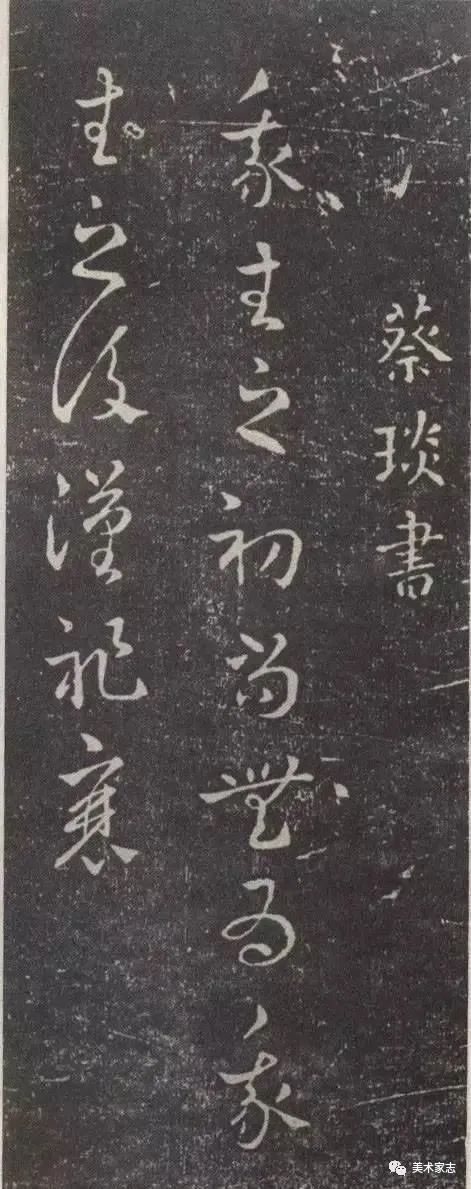 蔡琰書
我生之初尚無為我
生之後漢祚衰
美术家志